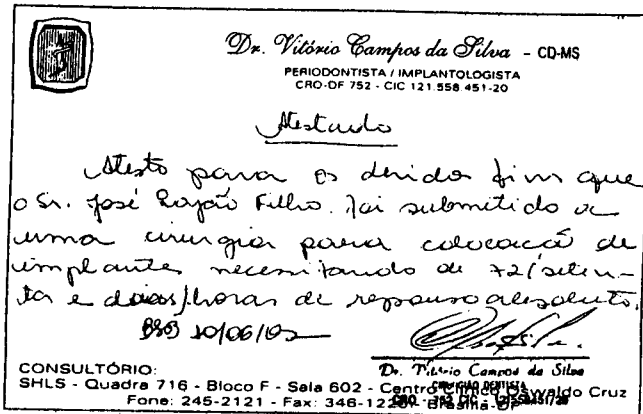 Dr. Vitório Campos da Silva - CD-MS
PERIODONTISTA / IMPLANTOLOGISTA
CRO-DF 752 - CIC 121.558.451-20
Atestado
Atesto para os devidos fins que
o Sr. José Rajão Filho. foi submetido a
uma cirurgia para colocação de
implantes necessitando de 72 (seten-
ta e duas) horas de repouso absoluto.
BSB 10/06/02
Dr. Vitório Campos da Silva
CIRURGIÃO DENTISTA
CONSULTÓRIO:
SHLS - Quadra 716 - Bloco F - Sala 602 - Centro Clínico Oswaldo Cruz
Fone: 245-2121 - Fax: 346-1220 - Brasília-DF